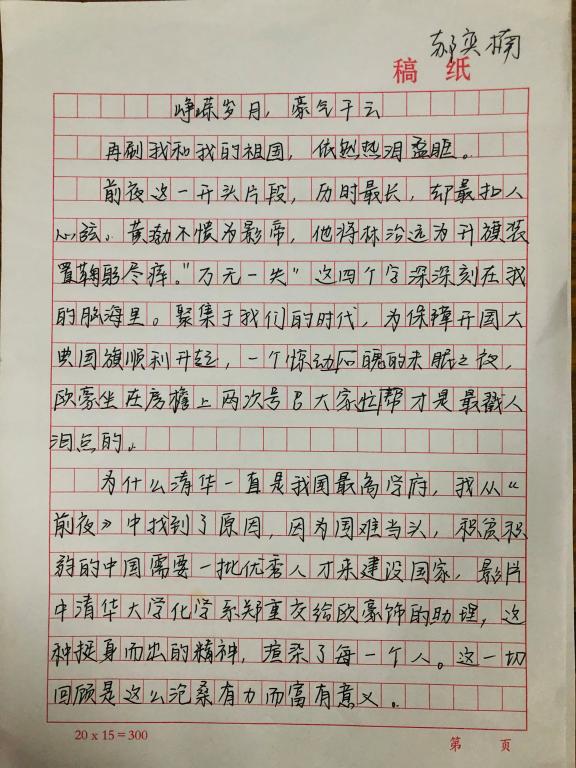 郁奕楠
稿 纸
峥嵘岁月，豪气干云
再刷我和我的祖国，依然热泪盈眶。
前夜这一开头片段，历时最长，却最扣人
心弦。黄渤不愧为影帝，他将林治远为升旗装
置鞠躬尽瘁。"万元一失"这四个字深深刻在我
的脑海里。聚集于我们的时代，为保障开国大
典国旗顺利升起，一个惊动心魄的未眠之夜，
欧豪坐在房檐上两次号召大家忙帮才是最戳人
泪点的。
为什么清华一直是我国最高学府，我从《
前夜》中找到了原因，因为国难当头，积贫积
弱的中国需要一批优秀人才来建设国家，影片
中清华大学化学系郑重交给欧豪饰的助理，这
种挺身而出的精神，渲染了每一个人。这一切
回顾是这么沧桑有力而富有意义。
20 x 15 = 300
第 页